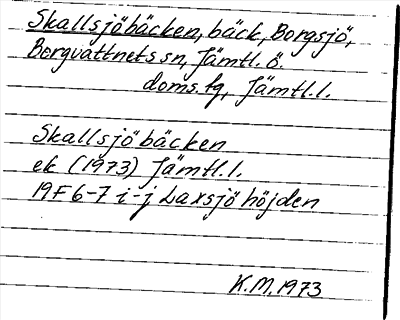 Skallsjöbäcken, bäck, Borgsjö,
Borgvattnets sn, Jämtl. ö.
doms.fg, Jämtl.l.
Skallsjöbäcken
ek (1973) Jämtl.l.
19F 6-7 i-j Laxsjöhöjden
K.M. 1973